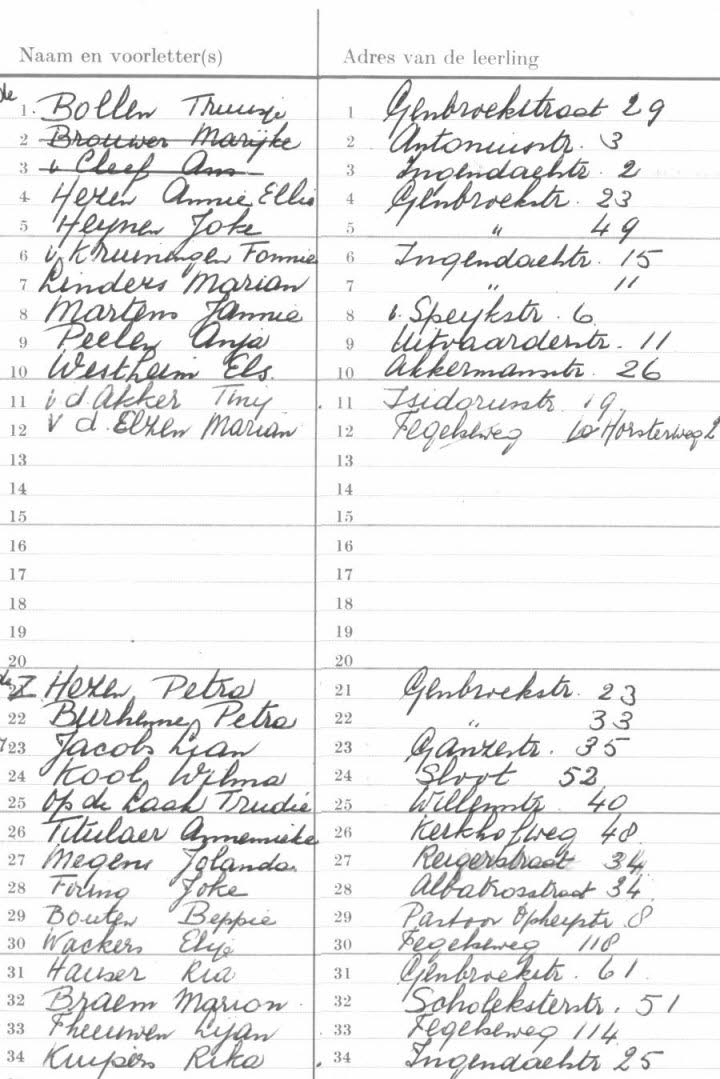 Naam en voorletter(s) Adres van de leerling
de
1. Bollen Truusje 1 Genbroekstraat 29
2 Brouwer Marijke 2 Antoniusstr. 3
3 v Cleef Ans 3 Ingendaelstr. 2
4 Hezen Annie Ellis 4 Genbroekstr. 23
5 Heynen Joke 5 " 49
6 v. Kruiningen Fonnie 6 Ingendaelstr. 15
7 Linders Marian 7 " 11
8 Martens Jannie 8 v. Speykstr. 6
9 Peelen Anja 9 Uitvaarderstr. 11
10 Westheim Els 10 Akkermansstr. 26
11 v d. Akker Tiny 11 Isidorusstr. 19
12 V d. Elzen Marian 12 Fegelseweg Horsterweg 2
13 13
14 14
15 15
16 16
17 17
18 18
19 19
20 20
Hezen Petra 21 Genbroekstr. 23
22 Petra 22 " 33
23 Jacobs Lian 23 Ganzestr. 35
24 Kool Wilma 24 Sloot 52
25 Op de Laak Trudie 25 Willemstr. 40
26 Titulaer Annemieke 26 Kerkhofweg 48
27 Megens Jolanda 27 Reigerstraat 34
28 Joke 28 Albatrosstraat 34
29 Bouten Beppie 29 Pastoor 8
30 Wackers Elije 30 Fegelseweg 118
31 Hauser Ria 31 Genbroekstr. 61.
32 Braem Marion 32 Scholeksterstr. 51
33 Theeuwen Lyan 33 Fegelseweg 114
34 Kuipers Rika 34 Ingendaelstr 25